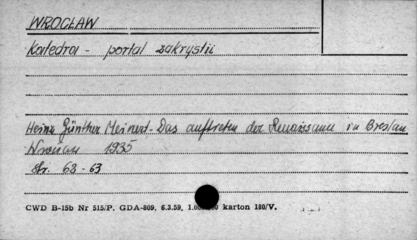 WROCŁAW
Katedra - portal zakrystii
Heinz Günther Meinert - Das auftreten der Renaissance in Breslau
1935
Str. 63 - 63
CWD B-15b Nr 515/P. GDA-809, 6.3.59, karton 180/V.